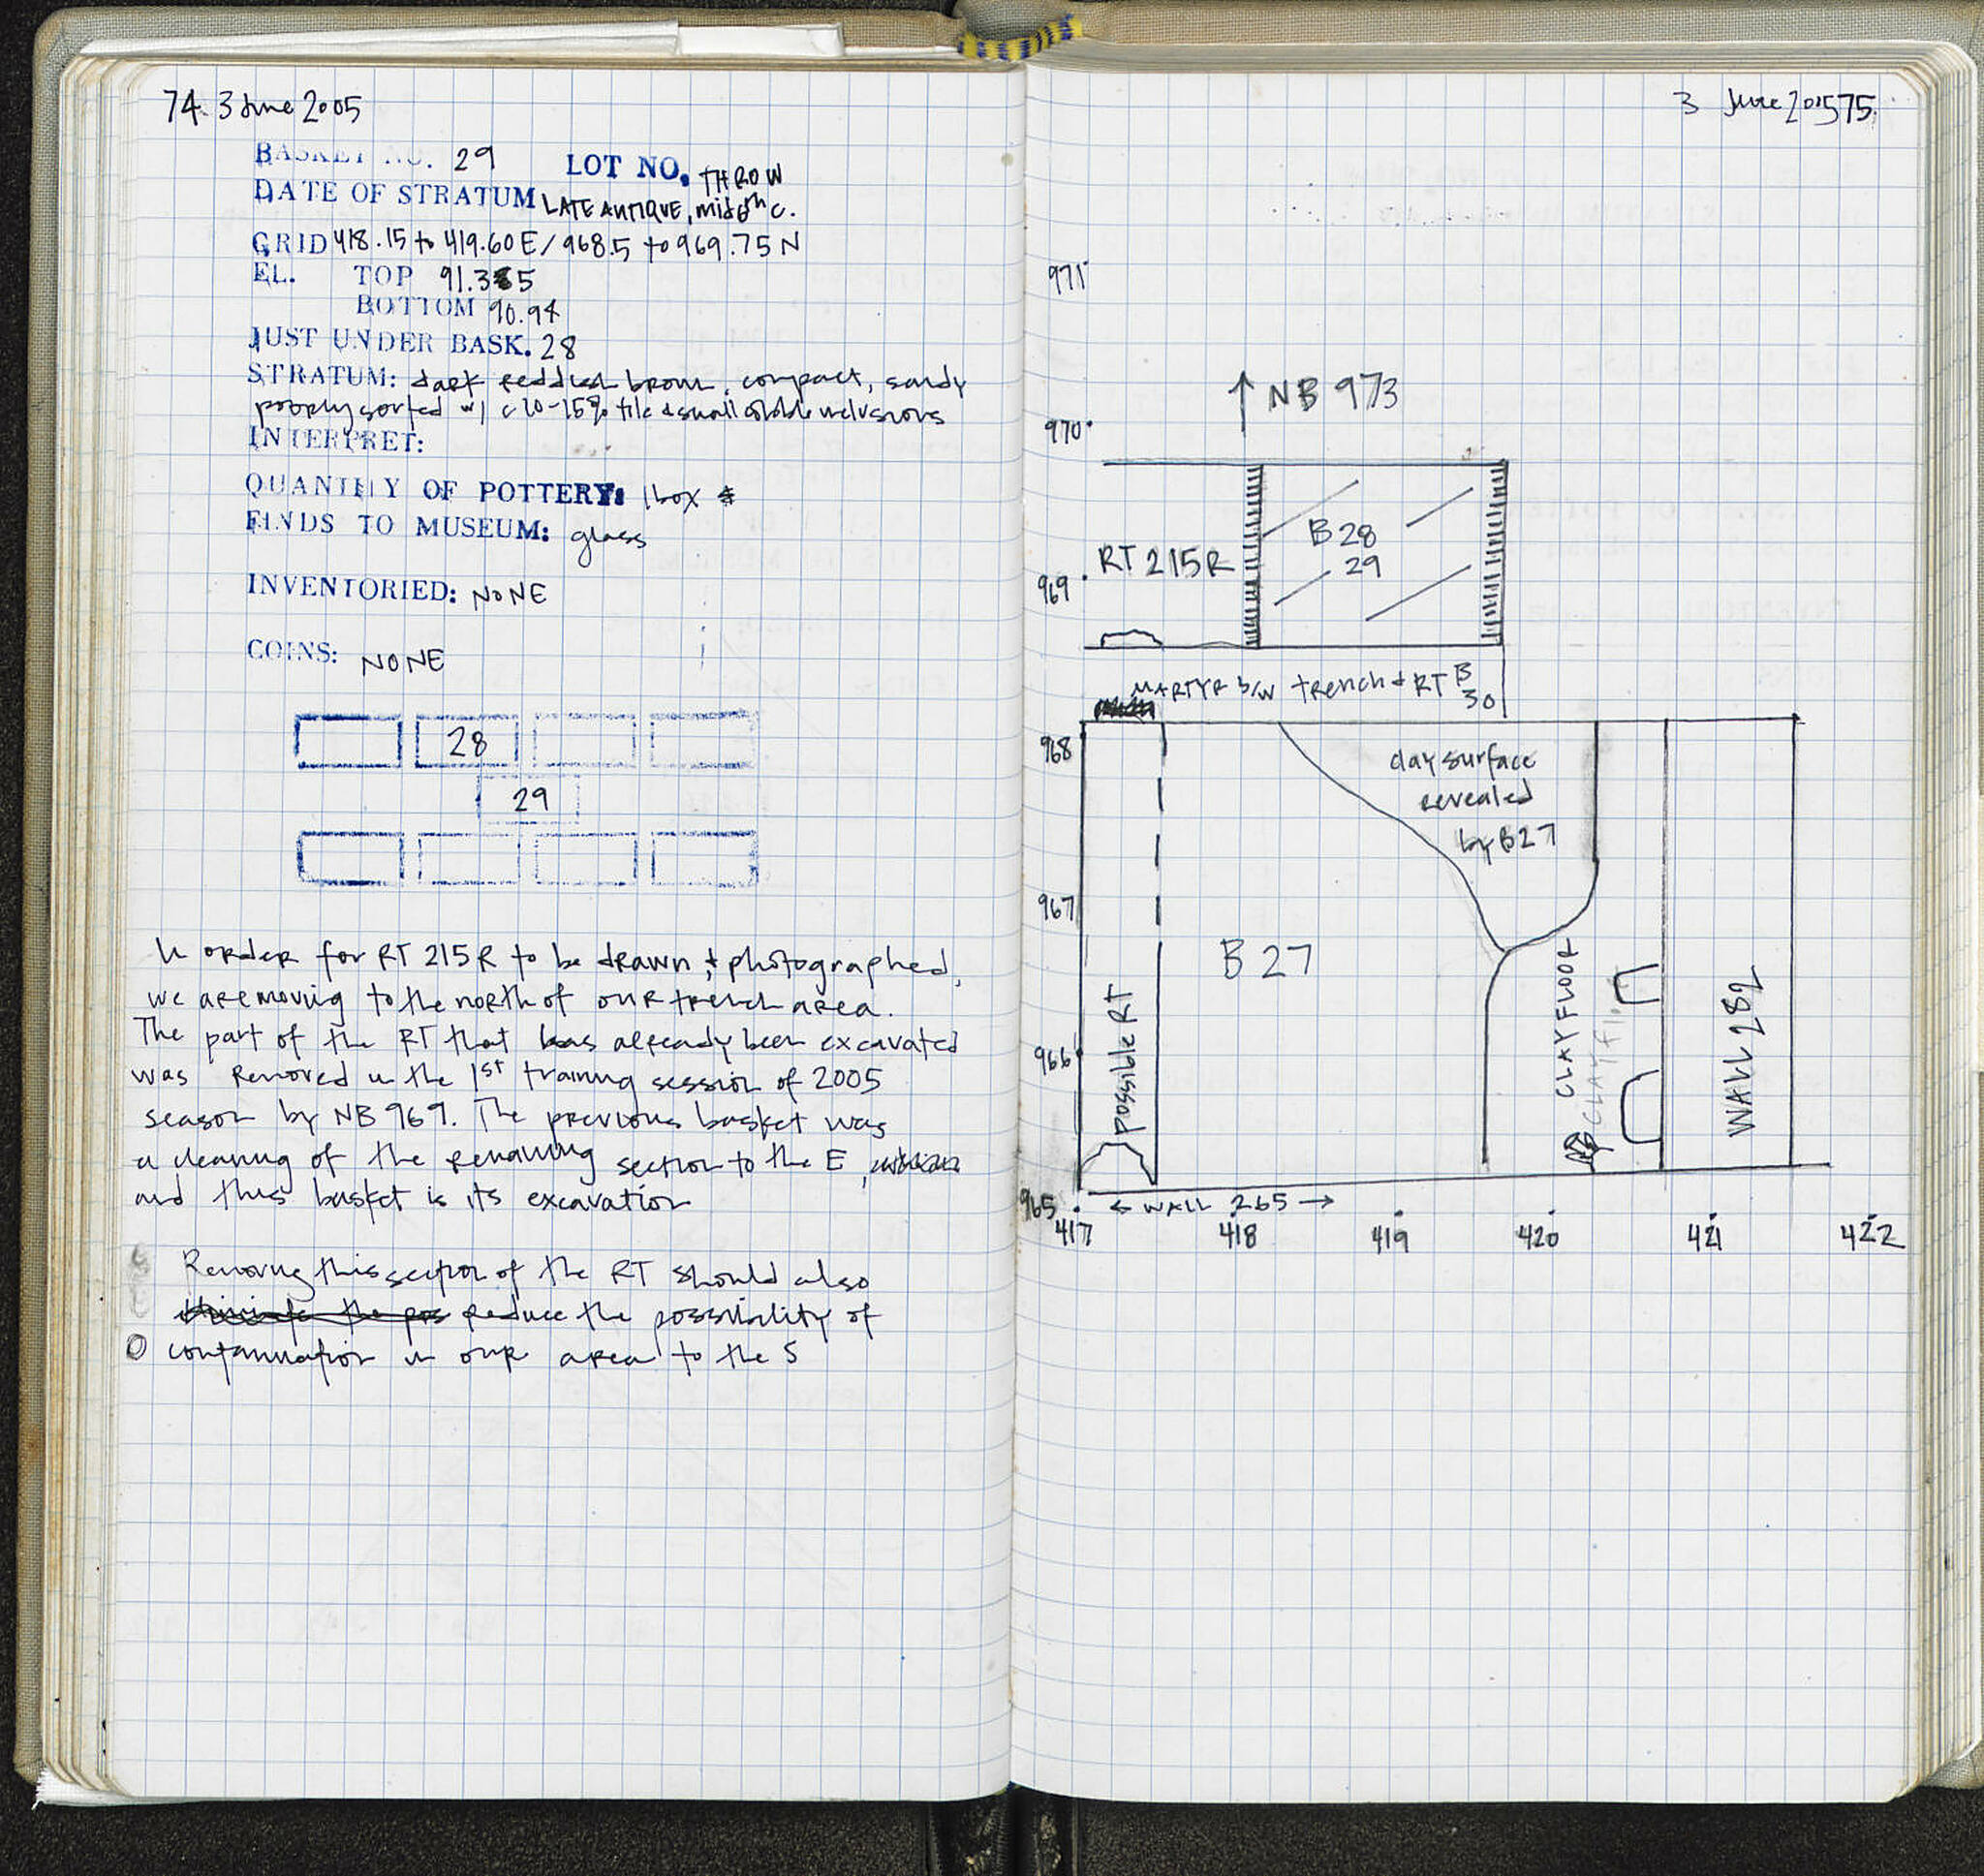 74. 3 June 2005
BASKET NO. 29 LOT NO. THROW
DATE OF STRATUM LATE ANTIQUE, mid 6th c.
GRID 418.15 to 419.60 E / 968.5 to 969.75 N
EL. TOP 91.35
BOTTOM 90.94
JUST UNDER BASK. 28
STRATUM: dark reddish brown, compact, sandy
poorly sorted w/ c 10-15% tile & small cobble inclusions
INTERPRET:
QUANTITY OF POTTERY: 1 box
FINDS TO MUSEUM: glass
INVENTORIED: NONE
COINS: NONE
28
29
In order for RT 215R to be drawn & photographed,
we are moving to the north of our trench area.
The part of the RT that has already been excavated
was removed in the 1st training session of 2005
season by NB 969. The previous basket was
a cleaning of the remaining section to the E,
and this basket is its excavation
Removing this section of the RT should also
reduce the possibility of
contamination in our area to the S
3 June 2005 75
971
↑ NB 973
970
B 28
29
RT 215R
969
MARTYR b/w trench & RT B
30
968
clay surface
revealed
by B27
967
B 27
CLAY FLOOR
CLAY Fl
WALL 282
Possible RT
966
965
← WALL 265 →
417 418 419 420 421 422